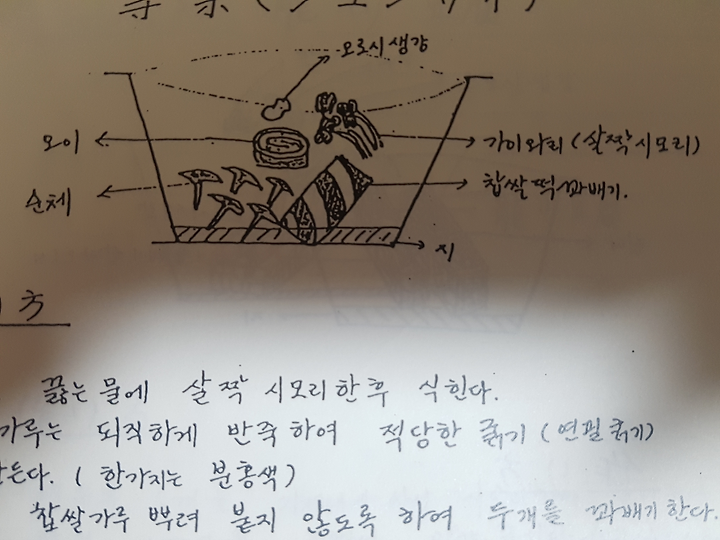 오로시생강
모이
가이와리(살짝시모리)
순체
찹쌀떡꽈배기.
지
方
끓는물에 살짝 시모리한후 식힌다.
가루는 되직하게 반죽하여 적당한 굵기(연필굵기)
만든다. (한가지는 분홍색)
찹쌀가루 뿌려 붙지 않도록 하여 두개를 꽈배기한다.